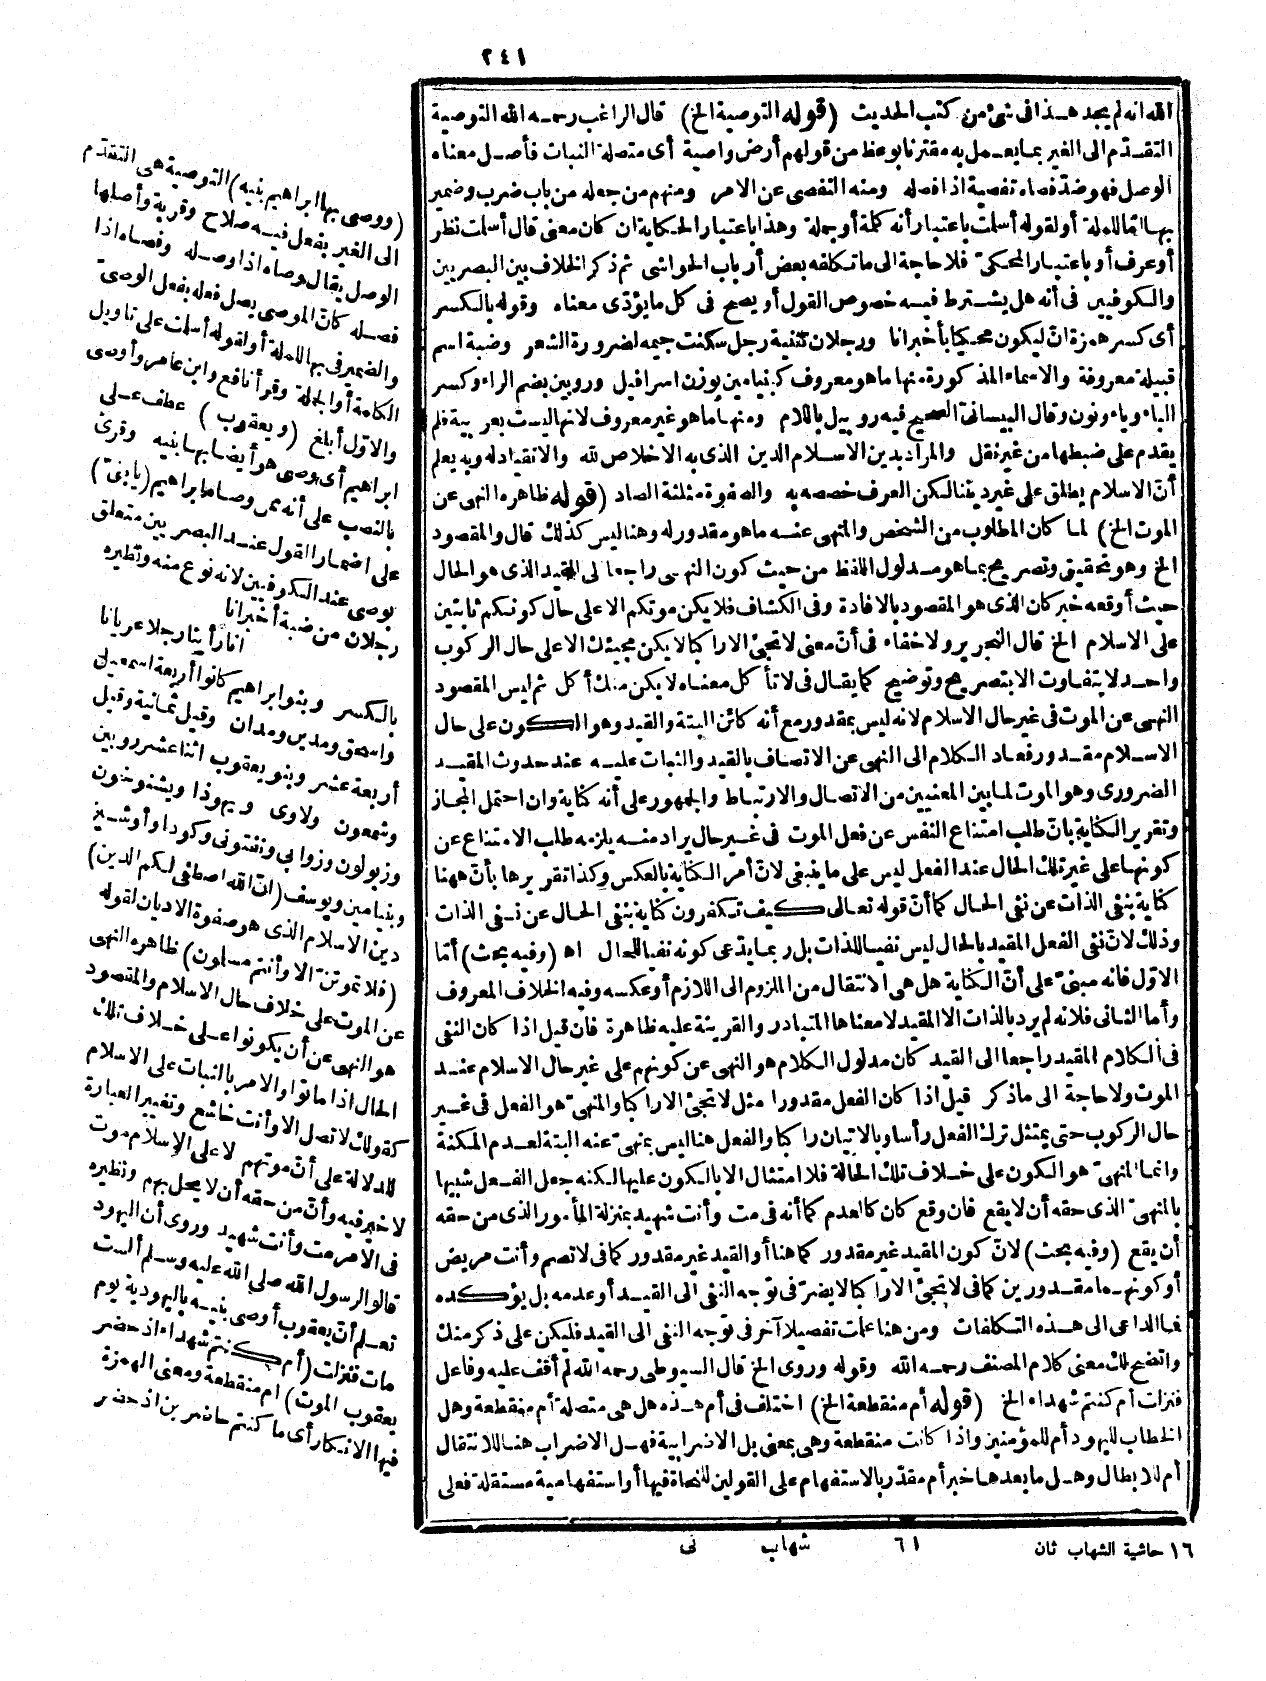 ٢٤١
الله انه لم يجد هذا فى شئ من كتب الحديث (قوله التوصية الخ) قال الراغب رحمه الله التوصية
التقدّم الى الغير بما يعمل به مقترنا بوعظ من قولهم أرض واصية أى متصلة النبات فأصل معناه
الوصل فهو ضدّ فصاه تفصية اذا فصله ومنه التفصى عن الامر ومنهم من جعله من باب ضرب وضمير
بها امّا للملة أو لقوله أسلمت باعتبار أنه كلمة أو جملة وهذا باعتبار الحكاية ان كان معنى قال أسلمت نظر
أو عرف أو باعتبار المحكىّ فلا حاجة الى ما تكلفه بعض أرباب الحواشى ثم ذكر الخلاف بين البصريين
والكوفيين فى أنه هل يشترط فيه خصوص القول أو يصح فى كل ما يؤدّى معناه وقوله بالكسر
أى كسر همزة انّ ليكون محكيا بأخبرانا ورجلان تثنية رجل سكنت جيمه لضرورة الشعر وضبة اسم
قبيلة معروفة والاسماء المذكورة منها ما هو معروف كبنيامين بوزن اسرافيل وروبين بضم الراء وكسر
الباء وياء ونون وقال البيسانىّ الصحيح فيه روبيل باللام ومنها ما هو غير معروف لانها ليست بعربية فلم
يقدم على ضبطها من غير نقل والمراد بدين الاسلام الدين الذى به الاخلاص لله والانقياد له وبه يعلم
أنّ الاسلام يطلق على غير ديننا لكن العرف خصصه به والصفوة مثلثة الصاد (قوله ظاهره النهى عن
الموت الخ) لما كان المطلوب من الشخص والمنهى عنه ما هو مقدور له وهنا ليس كذلك قال والمقصود
الخ وهو تحقيق وتصريح بما هو مدلول اللفظ من حيث كون النهى راجعا الى القيد الذى هو الحال
حيث أوقعه خبر كان الذى هو المقصود بالافادة وفى الكشاف فلا يكن موتكم الا على حال كونكم ثابتين
على الاسلام الخ قال النحرير ولا خفاء فى أنّ معنى لا تجئ الا راكبا لا يكن مجيئك الا على حال الركوب
واحد لا يتفاوت الا بتصريح وتوضيح كما يقال فى لا تأكل معناه لا يكن منك أكل ثم ليس المقصود
النهى عن الموت فى غير حال الاسلام لانه ليس بمقدور مع أنه كائن البتة والقيد وهو الكون على حال
الاسلام مقدور فعاد الكلام الى النهى عن الاتصاف بالقيد والثبات عليه عند حدوث المقيد
الضرورى وهو الموت لما بين المعنيين من الاتصال والارتباط والجمهور على أنه كناية وان احتمل المجاز
وتقرير الكناية بانّ طلب امتناع النفس عن فعل الموت فى غير حال يراد منه يلزمه طلب الامتناع عن
كونها على غير تلك الحال عند الفعل ليس على ما ينبغى لانّ أمر الكناية بالعكس وكذا تقريرها بأنّ ههنا
كناية بنفى الذات عن نفى الحال كما أنّ قوله تعالى كيف تكفرون كناية بنفى الحال عن نفى الذات
وذلك لانّ نفى الفعل المقيد بالحال ليس نفيا للذات بل ربما يدعى كونه نفيا للحال اه (وفيه بحث) أمّا
الاوّل فانه مبنىّ على أنّ الكناية هل هى الانتقال من الملزوم الى اللازم أو عكسه وفيه الخلاف المعروف
وأما الثانى فلانه لم يرد بالذات الا المقيد لا معناها المتبادر والقرينة عليه ظاهرة فان قيل اذا كان النفى
فى الكلام المقيد راجعا الى القيد كان مدلول الكلام هو النهى عن كونهم على غير حال الاسلام عند
الموت ولا حاجة الى ما ذكر قيل اذا كان الفعل مقدورا مثل لا تجئ الا راكبا والمنهىّ هو الفعل فى غير
حال الركوب حتى يمتثل ترك الفعل رأسا وبالاتيان راكبا والفعل هنا ليس بمنهىّ عنه البتة لعدم المكنة
وانما المنهىّ هو الكون على خلاف تلك الحالة فلا امتثال الا بالكون عليها لكنه جعل الفعل شبيها
بالمنهىّ الذى حقه أن لا يقع فان وقع كان كالعدم كما أنه فى مت وأنت شهيد بمنزلة المأمور الذى من حقه
أن يقع (وفيه بحث) لانّ كون المقيد غير مقدور كما هنا أو القيد غير مقدور كما فى لا تصم وأنت مريض
أو كونهما مقدورين كما فى لا تجئ الا راكبا لا يضرّ فى توجه النفى الى القيد أو عدمه بل يؤكده
فما الداعى الى هذه التكلفات ومن هنا علمت تفصيلا آخر فى توجه النفى الى القيد فليكن على ذكر منك
واتضح لك معنى كلام المصنف رحمه الله وقوله وروى الخ قال السيوطى رحمه الله لم أقف عليه وفاعل
فنزلت أم كنتم شهداء الخ (قوله أم منقطعة الخ) اختلف فى أم هذه هل هى متصلة أم منقطعة وهل
الخطاب لليهود أم للمؤمنين واذا كانت منقطعة وهى بمعنى بل الاضرابية فهل الاضراب هنا للانتقال
أم للابطال وهل ما بعدها خبر أم مقدّر بالاستفهام على القولين للنحاة فيها أو استفهامية مستقلة فعلى
(ووصى بها ابراهيم بنيه) التوصية هى التقدّم
الى الغير بفعل فيه صلاح وقربة وأصلها
الوصل يقال وصاه اذا وصله وفصاه اذا
فصله كانّ الموصى يصل فعله بفعل الوصىّ
والضمير فى بها للملة أو لقوله أسلمت على تأويل
الكلمة أو الجملة وقرأ نافع وابن عامر وأوصى
والاوّل أبلغ (ويعقوب) عطف على
ابراهيم أى ووصى هو أيضا بها بنيه وقرئ
بالنصب على أنه ممن وصاه ابراهيم (يا بنىّ)
على اضمار القول عند البصريين متعلق
بوصى عند الكوفيين لانه نوع منه ونظيره
رجلان من ضبة أخبرانا
انا رأينا رجلا عريانا
بالكسر وبنو ابراهيم كانوا أربعة اسمعيل
واسحق ومدين ومدان وقيل ثمانية وقيل
أربعة عشر وبنو يعقوب اثنا عشر روبين
وشمعون ولاوى ويهوذا ويشنوخون
وزبولون وزوانى ونفتونى وكودا وأوشير
وبنيامين ويوسف (انّ الله اصطفى لكم الدين)
دين الاسلام الذى هو صفوة الاديان لقوله
(فلا تموتنّ الا وأنتم مسلمون) ظاهره النهى
عن الموت على خلاف حال الاسلام والمقصود
هو النهى عن أن يكونوا على خلاف تلك
الحال اذا ماتوا والامر بالثبات على الاسلام
كقولك لا تصل الا وأنت خاشع وتغيير العبارة
للدلالة على أنّ موتهم لا على الاسلام موت
لا خير فيه وأنّ من حقه أن لا يحل بهم ونظيره
فى الامر مت وأنت شهيد وروى أن اليهود
قالوا لرسول الله صلى الله عليه وسلم ألست
تعلم أنّ يعقوب أوصى بنيه باليهودية يوم
مات فنزلت (أم كنتم شهداء اذ حضر
يعقوب الموت) ام منقطعة ومعنى الهمزة
فيها الانكار أى ما كنتم حاضرين اذ حضر
١٦ حاشية الشهاب ثان ٦١ شهاب نى